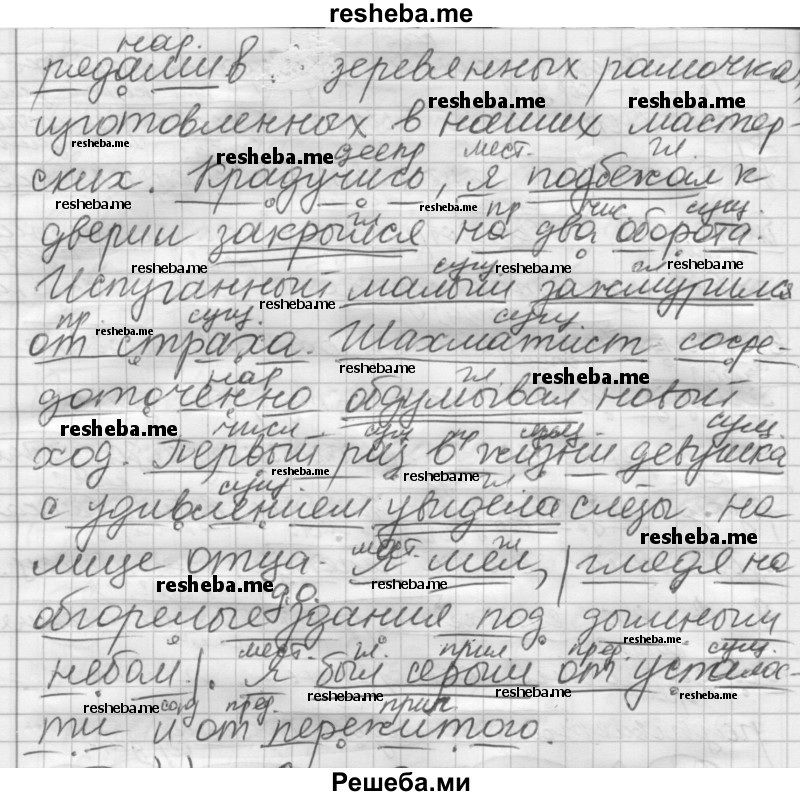 resheba.me
нар.
рядами в зеревянных рамочках,
resheba.me resheba.me
изготовленных в наших мастер-
resheba.me
resheba.me дееп мест. гл
ских. Крадучись, я подбежал к
resheba.me resheba.me
гл пр чис сущ.
двери и закрылся на два оборота.
resheba.me resheba.me
сущ гл
Испуганный малыш зажмурился
resheba.me
пр. сущ. сущ.
resheba.me
от страха. Шахматист сосре-
resheba.me
нар гл resheba.me
доточенно обдумывал новый
resheba.me
числ. сущ пр сущ. сущ.
ход. Первый раз в жизни девушка
resheba.me resheba.me
сущ гл
с удивлением увидела слёзы на
resheba.me
мест. гл
лице отца. Я шёл, глядя на
resheba.me resheba.me
д.о.
обгорелые здания под дымным
resheba.me
мест. гл. прил пред. сущ.
небом. Я был серым от усталос-
resheba.me resheba.me resheba.me
resheba.me союз пред. прич
ти и от пережитого.
Решеба.ми